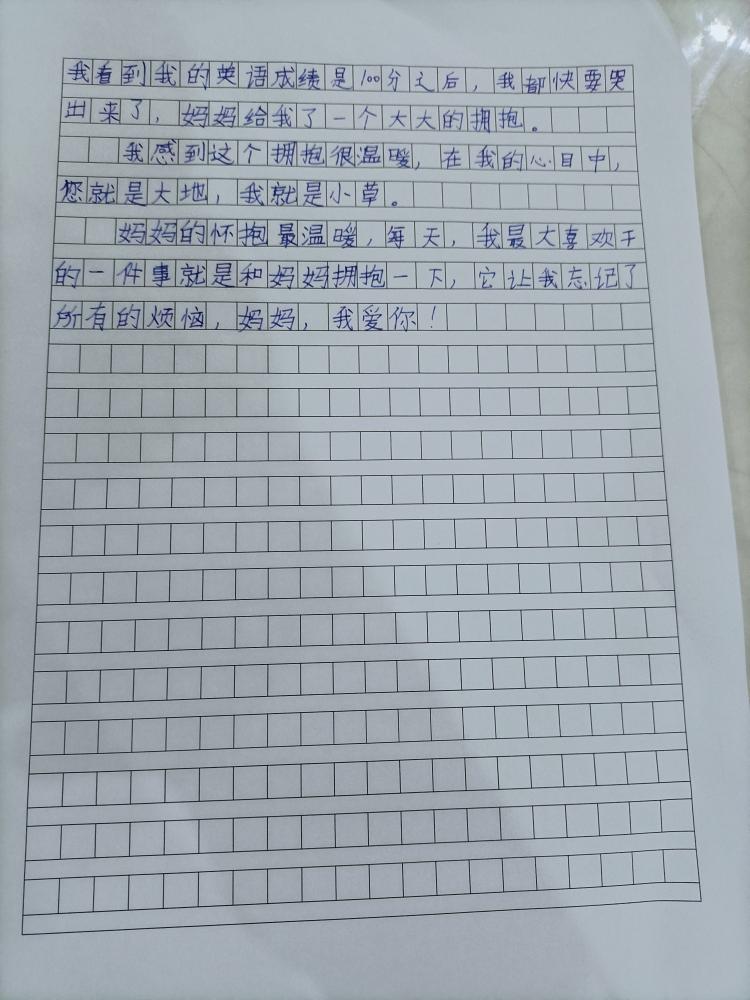 我看到我的英语成绩是100分之后，我都快要哭
出来了，妈妈给我了一个大大的拥抱。
我感到这个拥抱很温暖，在我的心目中，
您就是大地，我就是小草。
妈妈的怀抱最温暖，每天，我最大喜欢干
的一件事就是和妈妈拥抱一下，它让我忘记了
所有的烦恼，妈妈，我爱你！